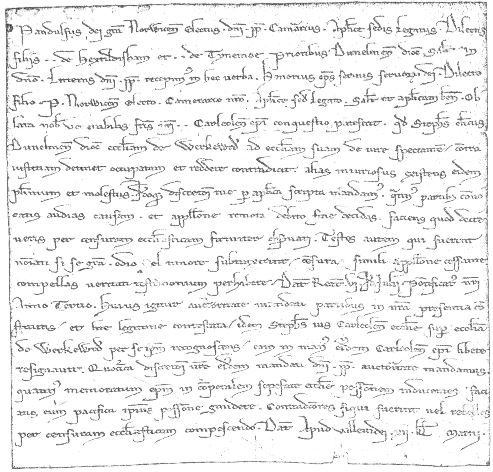 Pandulfus dei gra Norwicen Electus . dni . pp . Camarius . Aplice sedis legatus . Dilectis
filijs . . de Hextildisham et . . de Tynemue Prioribus Dunelmen dioc Salt in
dno . Litteras dni . pp . recepimus in hec verba . Honorius eps servus servor dei . Dilecto
filio . P . Norwicen Electo . Camerario nro . Aplice sed legato . Salt et aplicam ben . Ob
lata nob venerabilis fris nri . Carleolen epi conquestio patefecit . qd Stephs clericus
Dunelmen dioc eccliam de Werkewrd ad eccliam suam de iure spectante contra
iustitiam detinet occupatam et reddere contradicit . alias iniuriosus existens eidem
plurimum et molestus . discretioni tue p aplica scripta mandamus . quatinus partibus convo
catis audias causam . et appellone remota debito fine decidas . faciens quod decre
veris per censuram ecclesiasticam firmiter observari . Testes autem qui fuerint
nominati si se gra . odio . vel timore subtraxerint . censura simili appellone cessante
compellas veritati testimonium perhibere . Dat Reate Julij Pontificat nri
Anno Tertio . Huius igitur auctoritate mandati partibus in nra presentia con
stitutis . et lite legitime contestata . idem Stephs ius Carleolen ecclie sup ecclia
de Werkeword per se ipm recognoscens . eam in man eiusdem Carleolen epi libere
resignavit . Quocirca discretioni vre eiusdem mandati dni . pp . auctoritate mandamus .
quatinus memoratum epm in corporalem sepefate ecclie possessionem inducentes faci
atis eum pacifica ipius possessione gaudere . Contradictores siqui fuerint vel rebelles
per censuram ecclesiasticam compescendo . Dat Apud . vii . kl Martii .